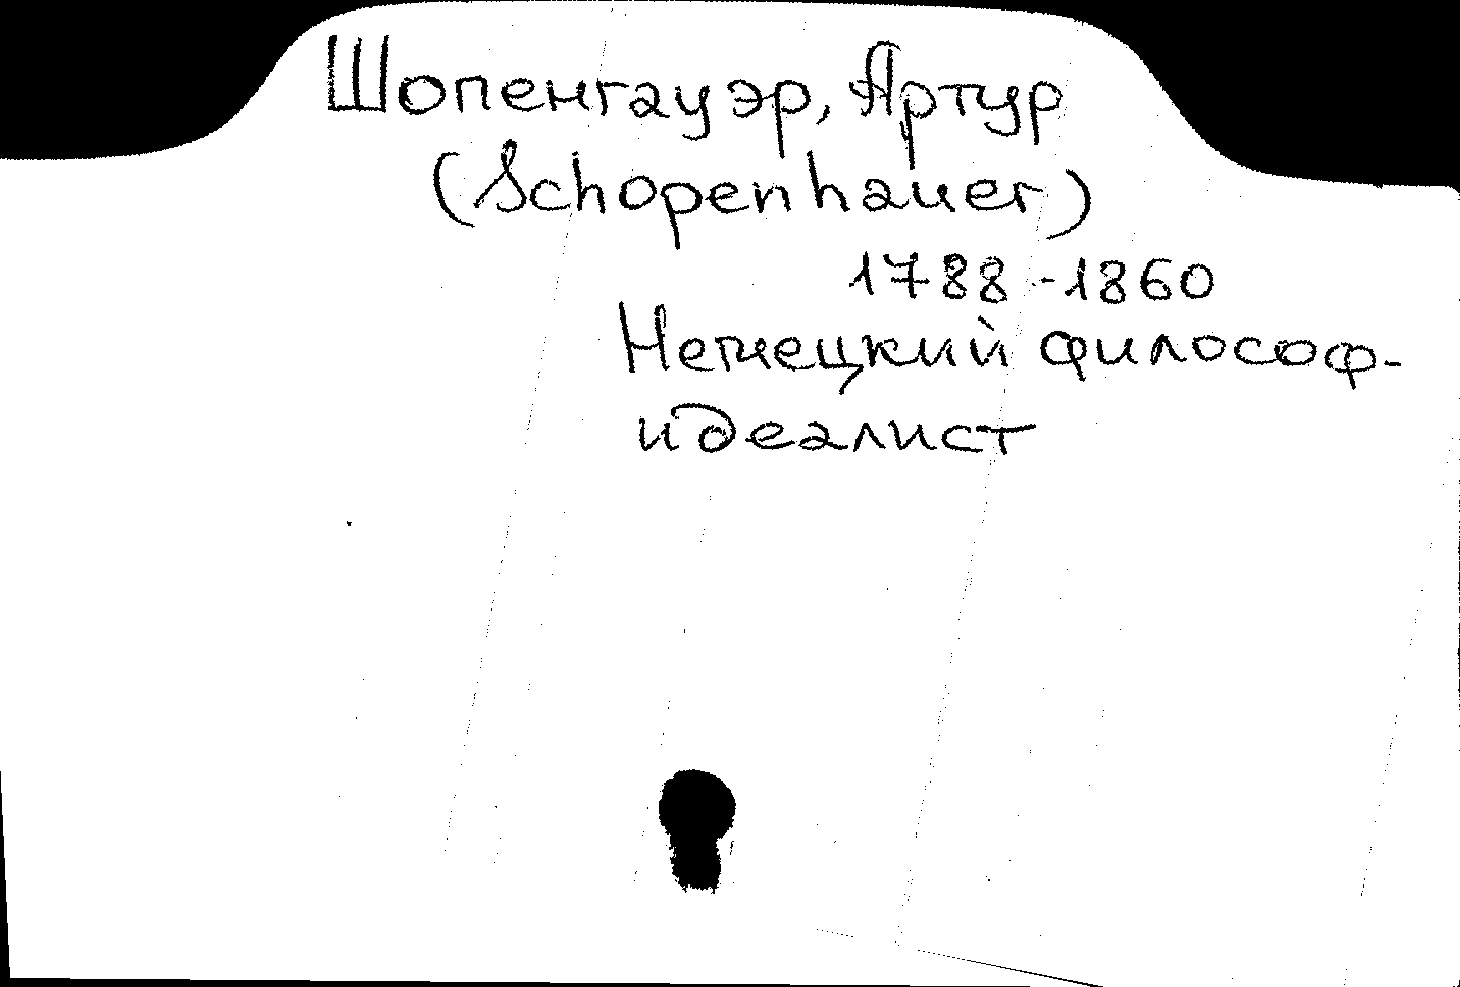 Шопенгауэр, Артур
(Schopenhauer)
1788-1860
Немецкий философ-
идеалист